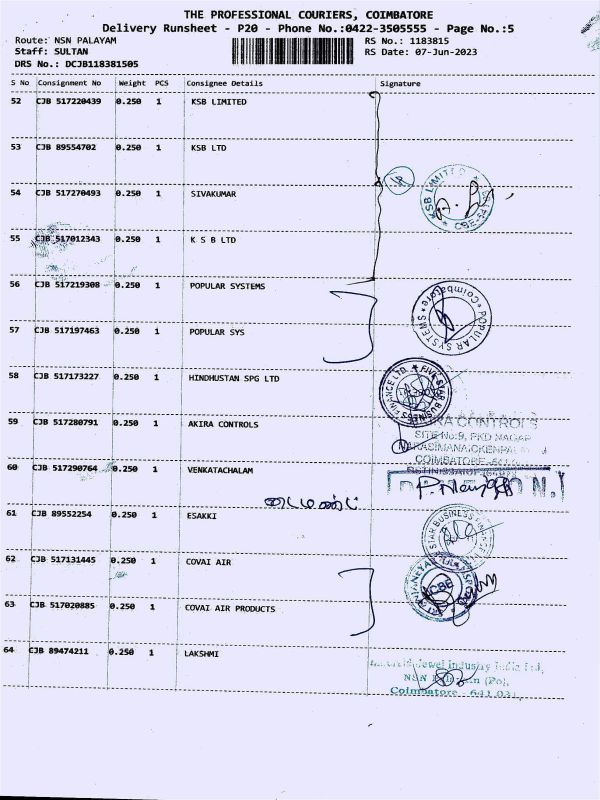 THE PROFESSIONAL COURIERS, COIMBATORE
Delivery Runsheet - P20 - Phone No.:0422-3505555 - Page No.:5
Route: NSN PALAYAM
RS No.: 1183815
Staff: SULTAN
RS Date: 07-Jun-2023
DRS No.: DCJB118381505
S No Consignment No Weight PCS Consignee Details Signature
52 CJB 517220439 0.250 1 KSB LIMITED
53 CJB 89554702 0.250 1 KSB LTD
54 CJB 517270493 0.250 1 SIVAKUMAR
KSB LIMITED
55 CJB 517012343 0.250 1 K S B LTD
56 CJB 517219308 0.250 1 POPULAR SYSTEMS
POPULAR SYSTEMS * Coimbatore *
57 CJB 517197463 0.250 1 POPULAR SYS
58 CJB 517173227 0.250 1 HINDHUSTAN SPG LTD
FIVE STAR BUSINESS FINANCE LTD.
59 CJB 517280791 0.250 1 AKIRA CONTROLS
AKIRA CONTROLS
SITE No:9, PKD NAGAR
60 CJB 517290764 0.250 1 VENKATACHALAM
61 CJB 89552254 0.250 1 ESAKKI
STAR BUSINESS
62 CJB 517131445 0.250 1 COVAI AIR
CBE
63 CJB 517020885 0.250 1 COVAI AIR PRODUCTS
64 CJB 89474211 0.250 1 LAKSHMI
Jewel Industry India Ltd,
NSN (Po),
Coimbatore